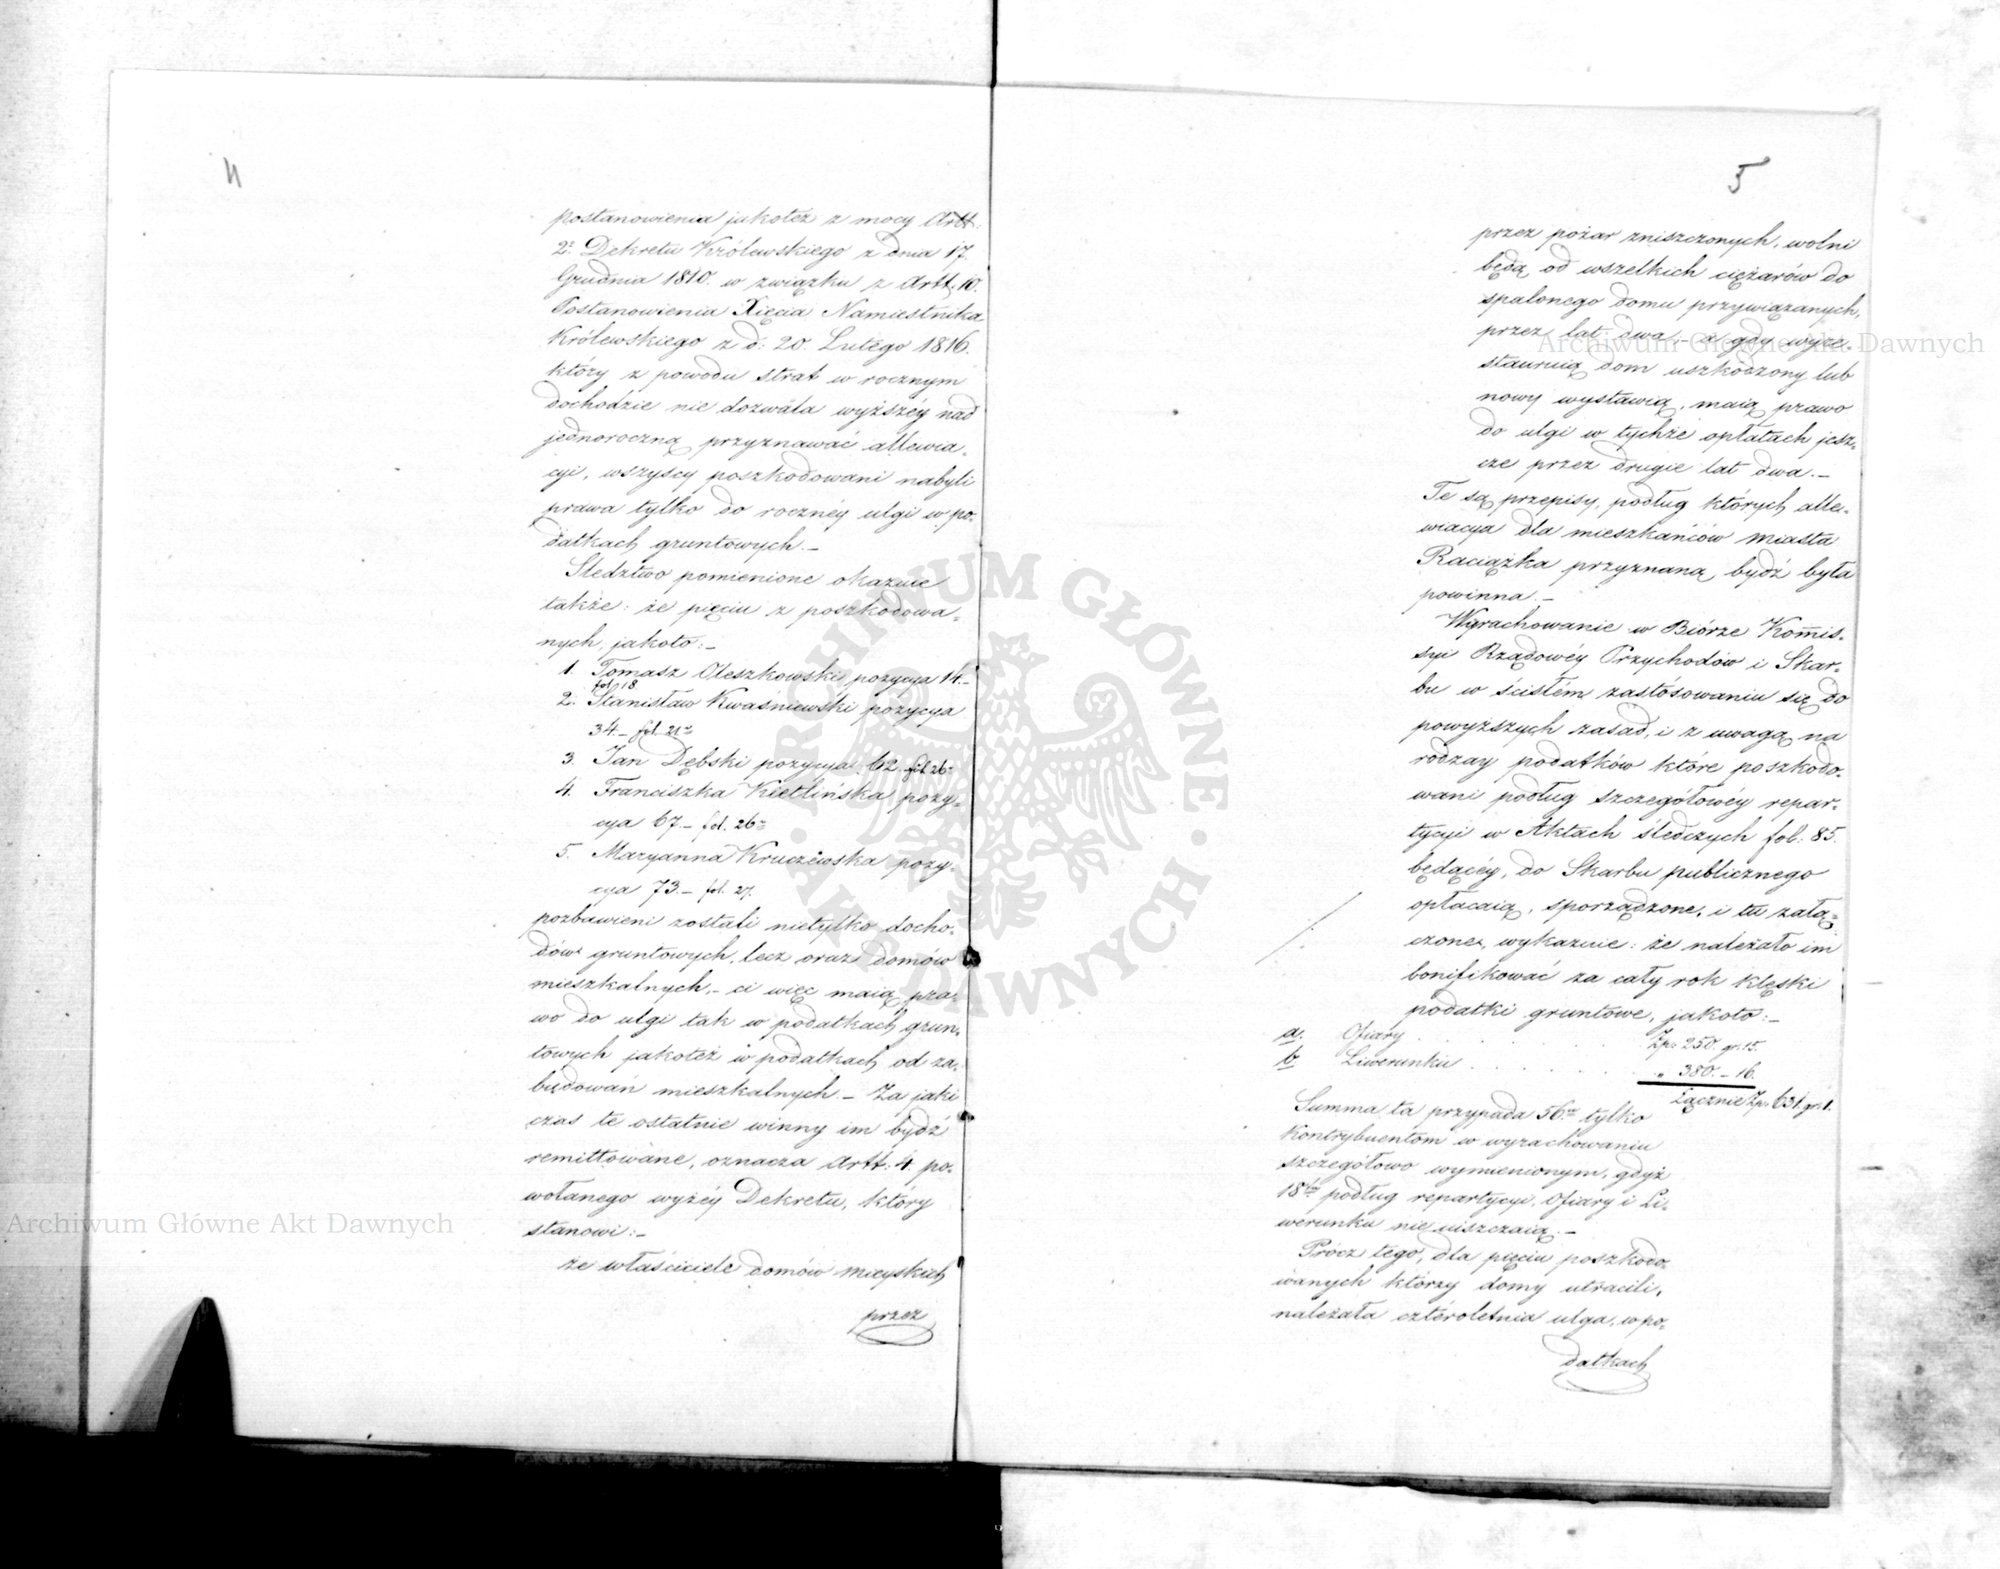 4
postanowienia jakoteż z mocy Artt.
2º Dekretu Królewskiego z dnia 17.
Grudnia 1810. w związku z Artt. 10.
Postanowienia Xięcia Namiestnika
Królewskiego z d: 20. Lutego 1816.
który z powodu strat w rocznym
dochodzie nie dozwala wyższéy nad
jednoroczną przyznawać allewia-
cyi, wszyscy poszkodowani nabyli
prawa tylko do rocznéy ulgi w po-
datkach gruntowych.–
Śledztwo pomienione okazuie
także: że pięciu z poszkodowa-
nych, jakoto:–
1. Tomasz Oleszkowski pozycya 14.–
fol. 18.
2. Stanisław Kwaśniewski pozycya
34.– fol. 21
3. Jan Dębski pozycya 62. fol. 26.
4. Franciszka Kietlińska pozy-
cya 67.– fol. 26
5. Maryanna Kruczewska pozy-
cya 73.– fol. 27.
pozbawieni zostali nietylko docho-
dów gruntowych, lecz oraz domów
mieszkalnych,– ci więc maią pra-
wo do ulgi tak w podatkach grun-
towych jakoteż w podatkach od za-
budowań mieszkalnych.– Za jaki
czas te ostatnie winny im bydź
remittowane, oznacza Artt: 4 po-
wołanego wyżéy Dekretu, który
stanowi:–
że właściciele domów mieyskich
przez
5
przez pożar zniszczonych, wolni
będą od wszelkich ciężarów do
spalonego domu przywiązanych,
przez lat dwa,– a gdy wyre-
stauruią dom uszkodzony lub
nowy wystawią, maią prawo
do ulgi w tychże opłatach jesz-
cze przez drugie lat dwa.–
Te są przepisy, podług których alle-
wiacya dla mieszkańców miasta
Raciążka przyznaną bydź była
powinna.–
Wyrachowanie w Biórze Kommis-
syi Rządowéy Przychodów i Skar-
bu w ścisłém zastósowaniu się do
powyższych zasad, i z uwagą na
rodzay podatków które poszkodo-
wani podług szczegółowéy repar-
tycyi w Aktach śledczych fol: 85.
będącéy, do Skarbu publicznego
opłacaią, sporządzone, i tu załą-
czone, wykazuie: że należało im
bonifikować za cały rok klęski
podatki gruntowe, jakoto:–
a. Ofiary . . . . . Zp: 250. gr. 15.
b. Liwerunku . . . . . „ 380.– 16.
Łącznie Zp: 631. gr. 1.
Summa ta przypada 56 tylko
Kontrybuentom w wyrachowaniu
szczegółowo wymienionym, gdyż
18 podług repartycyi, Ofiary i Li-
werunku nie uiszczaią.–
Prócz tego, dla pięciu poszkodo-
wanych którzy domy utracili,
należała czteroletnia ulga, w po-
datkach
Archiwum Główne Akt Dawnych
Archiwum Główne Akt Dawnych
ARCHIWUM GŁÓWNE AKT DAWNYCH